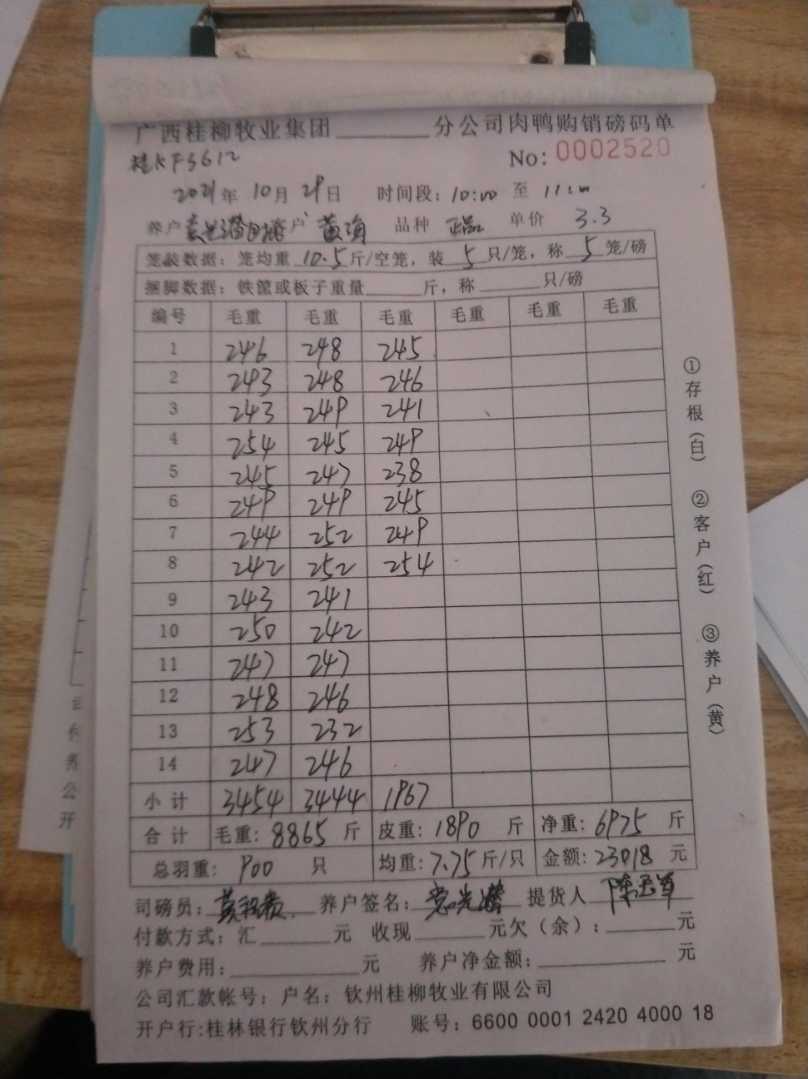 广西桂柳牧业集团________分公司肉鸭购销磅码单
桂KF3612 No: 0002520
2021年 10月 29日 时间段: 10:00 至 11:00
养户 客户 黄海 品种 正品 单价 3.3
笼装数据: 笼均重 10.5 斤/空笼, 装 5 只/笼, 称 5 笼/磅
捆脚数据: 铁筐或板子重量______斤, 称______只/磅
编号 毛重 毛重 毛重 毛重 毛重 毛重
1 246 248 245
2 243 248 246
3 243 249 241
4 254 245 249
5 245 247 238
6 249 249 245
7 244 252 249
8 242 252 254
9 243 241
10 250 242
11 247 247
12 248 246
13 253 232
14 247 246
小计 3454 3444 1967
合计 毛重: 8865 斤 皮重: 1890 斤 净重: 6975 斤
总羽重: 900 只 均重: 7.75 斤/只 金额: 23018 元
司磅员: 养户签名: 提货人
付款方式: 汇______元 收现______元欠(余): ______元
养户费用: ________元 养户净金额: ________元
公司汇款帐号: 户名: 钦州桂柳牧业有限公司
开户行:桂林银行钦州分行 账号: 6600 0001 2420 4000 18
①存根(白) ②客户(红) ③养户(黄)